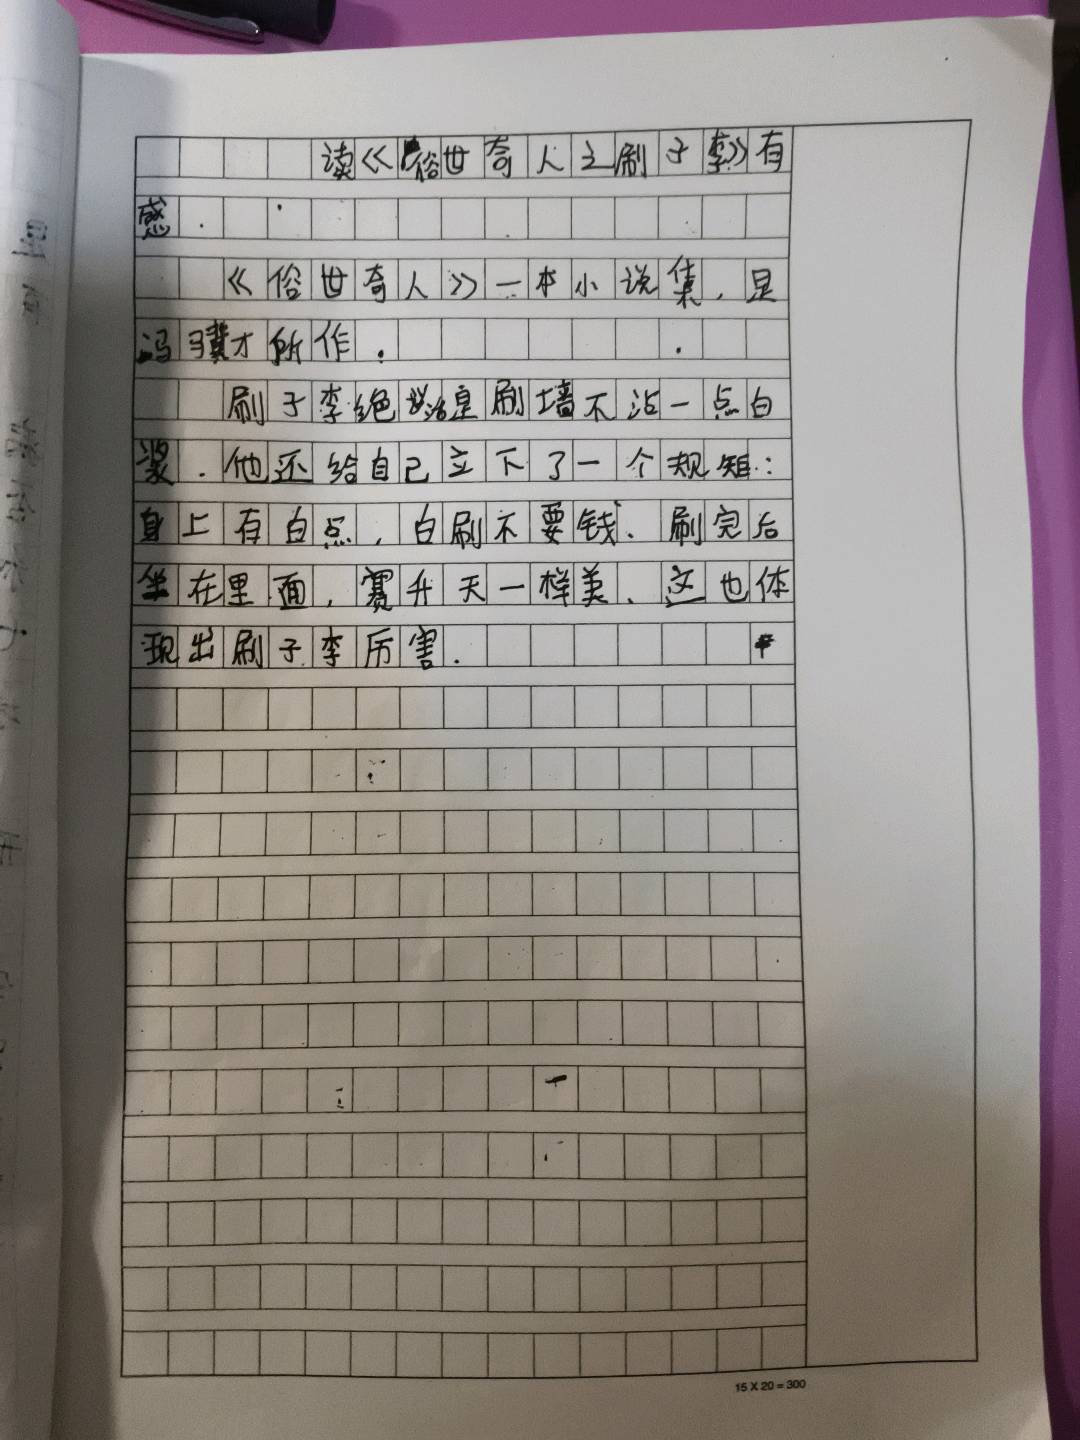 读《俗世奇人之刷子李》有
感.
《俗世奇人》一本小说集,是
冯骥才所作.
刷子李绝世活是刷墙不沾一点白
浆.他还给自己立下了一个规矩:
身上有白点,白刷不要钱、刷完后
坐在里面,赛升天一样美、这也体
现出刷子李厉害.
15 X 20 = 300